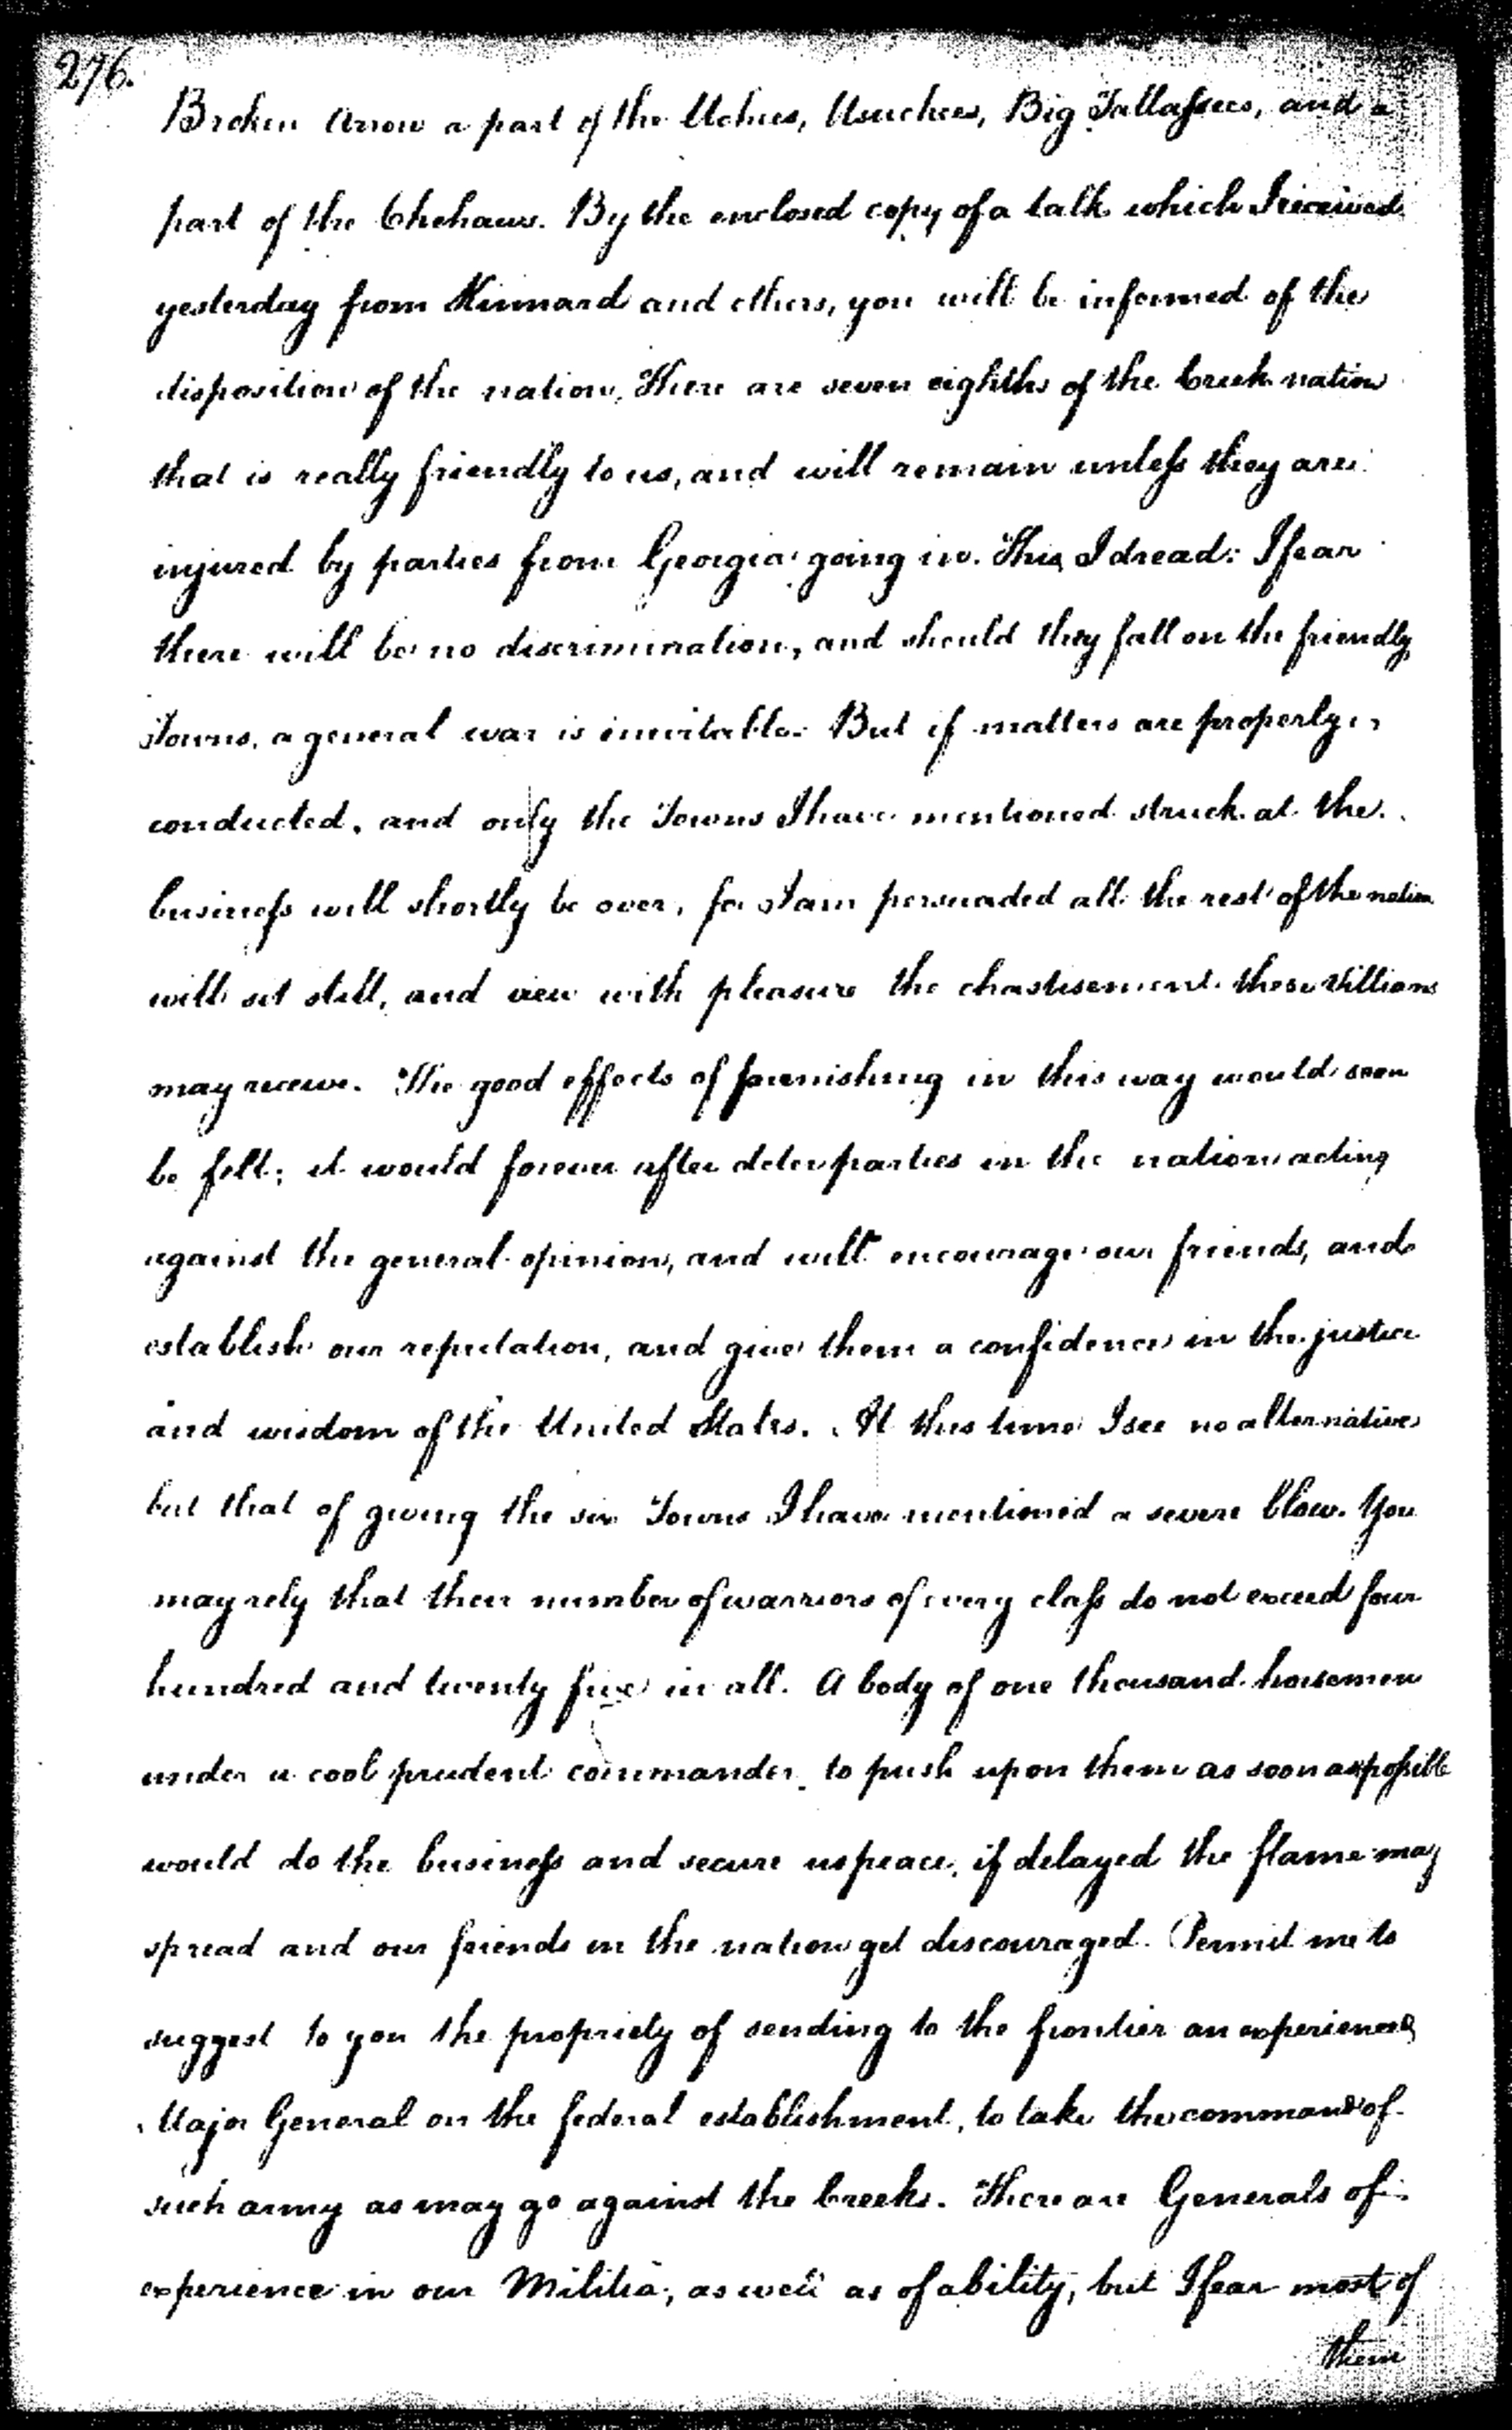 276.
Broken Arrow a part of the Uchees, Usuchees, Big Tallassees, and a
part of the Chehaws. By the enclosed copy of a talk which I received
yesterday from Kinnard and others, you will be informed of the
disposition of the nation. There are seven eighths of the Creek nation
that is really friendly to us, and will remain unless they are
injured by parties from Georgia going in. This I dread: I fear
there will be no discrimination, and should they fall on the friendly
Towns, a general war is inevitable. But if matters are properly
conducted, and only the Towns I have mentioned struck at the
business will shortly be over, for I am persuaded all the rest of the nation
will sit still, and view with pleasure the chastisement these Villians
may receive. The good effects of punishing in this way would soon
be felt; it would forever after deter parties in the nation acting
against the general opinion, and will encourage our friends, and
establish our reputation, and give them a confidence in the justice
and wisdom of the United States. At this time I see no alternative
but that of giving the six Towns I have mentioned a severe blow. You
may rely that their number of warriors of every class do not exceed four
hundred and twenty five in all. A body of one thousand horsemen
under a cool prudent commander to push upon them as soon as possible
would do the business and secure us peace, if delayed the flame may
spread and our friends in the nation get discouraged. Permit me to
suggest to you the propriety of sending to the frontier an experienced
Major General on the federal establishment, to take the command of
such army as may go against the Creeks. There are Generals of
experience in our Militia, as well as of ability, but I fear most of
them